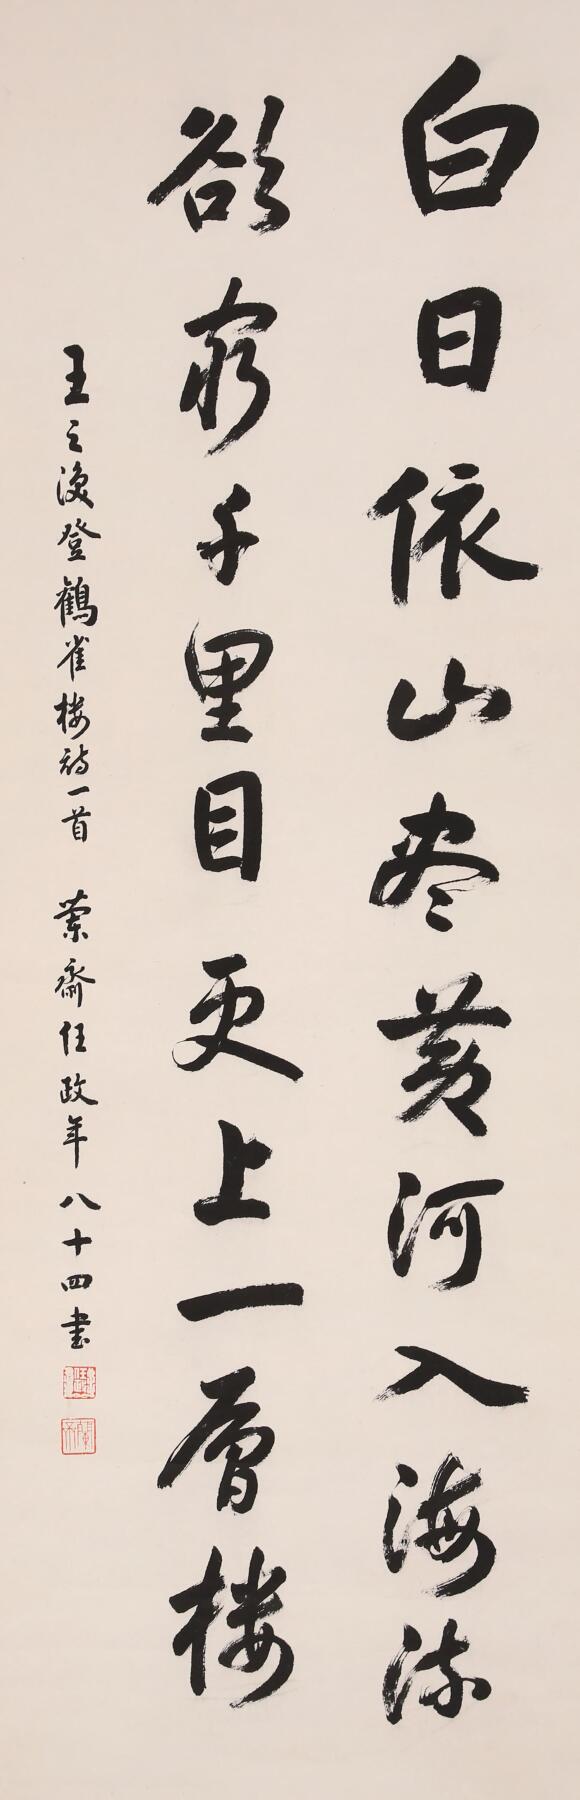 白日依山尽黄河入海流
欲穷千里目更上一层楼
王之涣登鹤雀楼诗一首 兰斋任政年八十四书